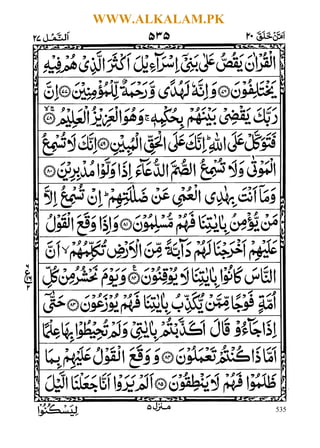 WWW.ALKALAM.PK
اَمَّنْ خَلَقَ ٢٠
٥٣٥
اَلنَّمْل ٢٧
الْقُرْاٰنَ يَقُصُّ عَلٰى بَنِىْٓ اِسْرَآءِيْلَ اَكْثَرَ الَّذِىْ هُمْ فِيْهِ
يَخْتَلِفُوْنَ ﴿٧٦﴾ وَاِنَّهٗ لَهُدًى وَّرَحْمَةٌ لِّلْمُؤْمِنِيْنَ ﴿٧٧﴾ اِنَّ
رَبَّكَ يَقْضِىْ بَيْنَهُمْ بِحُكْمِهٖ ۚ وَهُوَ الْعَزِيْزُ الْعَلِيْمُ ﴿٧٨﴾
فَتَوَكَّلْ عَلَى اللّٰهِ ؕ اِنَّكَ عَلَى الْحَقِّ الْمُبِيْنِ ﴿٧٩﴾ اِنَّكَ لَا تُسْمِعُ
الْمَوْتٰى وَلَا تُسْمِعُ الصُّمَّ الدُّعَآءَ اِذَا وَلَّوْا مُدْبِرِيْنَ ﴿٨٠﴾
وَمَآ اَنْتَ بِهٰدِى الْعُمْىِ عَنْ ضَلٰلَتِهِمْ ؕ اِنْ تُسْمِعُ اِلَّا
مَنْ يُّؤْمِنُ بِاٰيٰتِنَا فَهُمْ مُّسْلِمُوْنَ ﴿٨١﴾ وَاِذَا وَقَعَ الْقَوْلُ
عَلَيْهِمْ اَخْرَجْنَا لَهُمْ دَآبَّةً مِّنَ الْاَرْضِ تُكَلِّمُهُمْ ۙ اَنَّ
النَّاسَ كَانُوْا بِاٰيٰتِنَا لَا يُوْقِنُوْنَ ﴿٨٢﴾ وَيَوْمَ نَحْشُرُ مِنْ كُلِّ
اُمَّةٍ فَوْجًا مِّمَّنْ يُّكَذِّبُ بِاٰيٰتِنَا فَهُمْ يُوْزَعُوْنَ ﴿٨٣﴾ حَتّٰٓى
اِذَا جَآءُوْ قَالَ اَكَذَّبْتُمْ بِاٰيٰتِىْ وَلَمْ تُحِيْطُوْا بِهَا عِلْمًا
اَمَّا ذَا كُنْتُمْ تَعْمَلُوْنَ ﴿٨٤﴾ وَوَقَعَ الْقَوْلُ عَلَيْهِمْ بِمَا
ظَلَمُوْا فَهُمْ لَا يَنْطِقُوْنَ ﴿٨٥﴾ اَلَمْ يَرَوْا اَنَّا جَعَلْنَا الَّيْلَ
منزل ٥
لِيَسْكُنُوْا
535